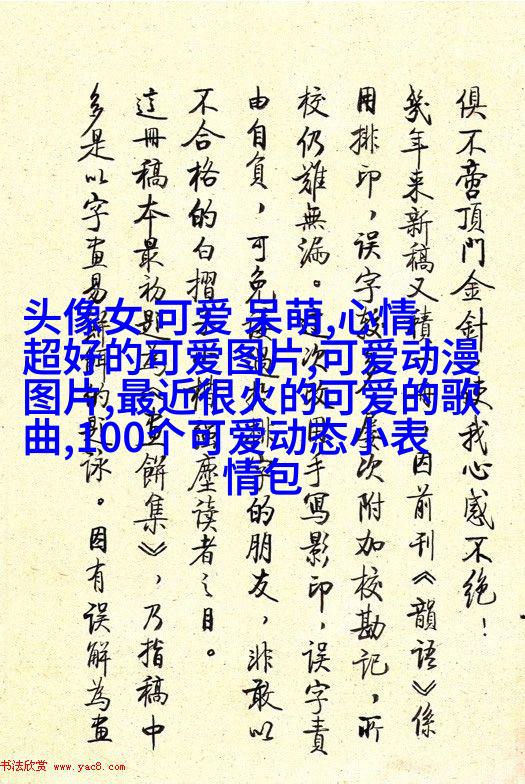 俱不啻頂門金針,使我心感不絕!
幾年来新稿又積一冊,因前刊《韻語》係
用排印,誤字較多,屢次附加校勘記,所
校仍難無漏。這次改用手寫影印,誤字責
由自負,可免排字的朋友,非敢以
不合格的白摺小楷強塵讀者之目。
這冊稿本最初題為《畫餅集》,乃指稿中
多是以字畫易餅餌的題詠。因有誤解為畫
头像女 可爱 呆萌,心情
超好的可爱图片,可爱动漫
图片,最近很火的可爱的歌
曲,100个可爱动态小表
情包
书法欣赏 www.yac8.com